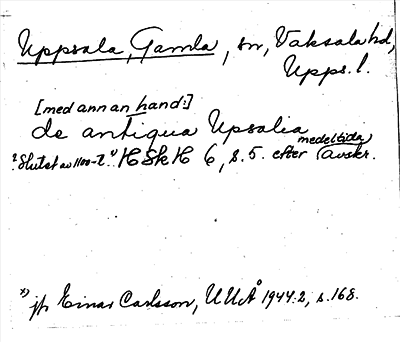 Uppsala, Gamla, sn, Vaksala hd,
Upps. l.
[med annan hand:]
de antiqua Upsalia
? Slutet av 1100-t. x) HSH 6, s. 5. efter medeltida avskr.
x) jfr Einar Carlsson, UUÅ 1944:2, s. 168.